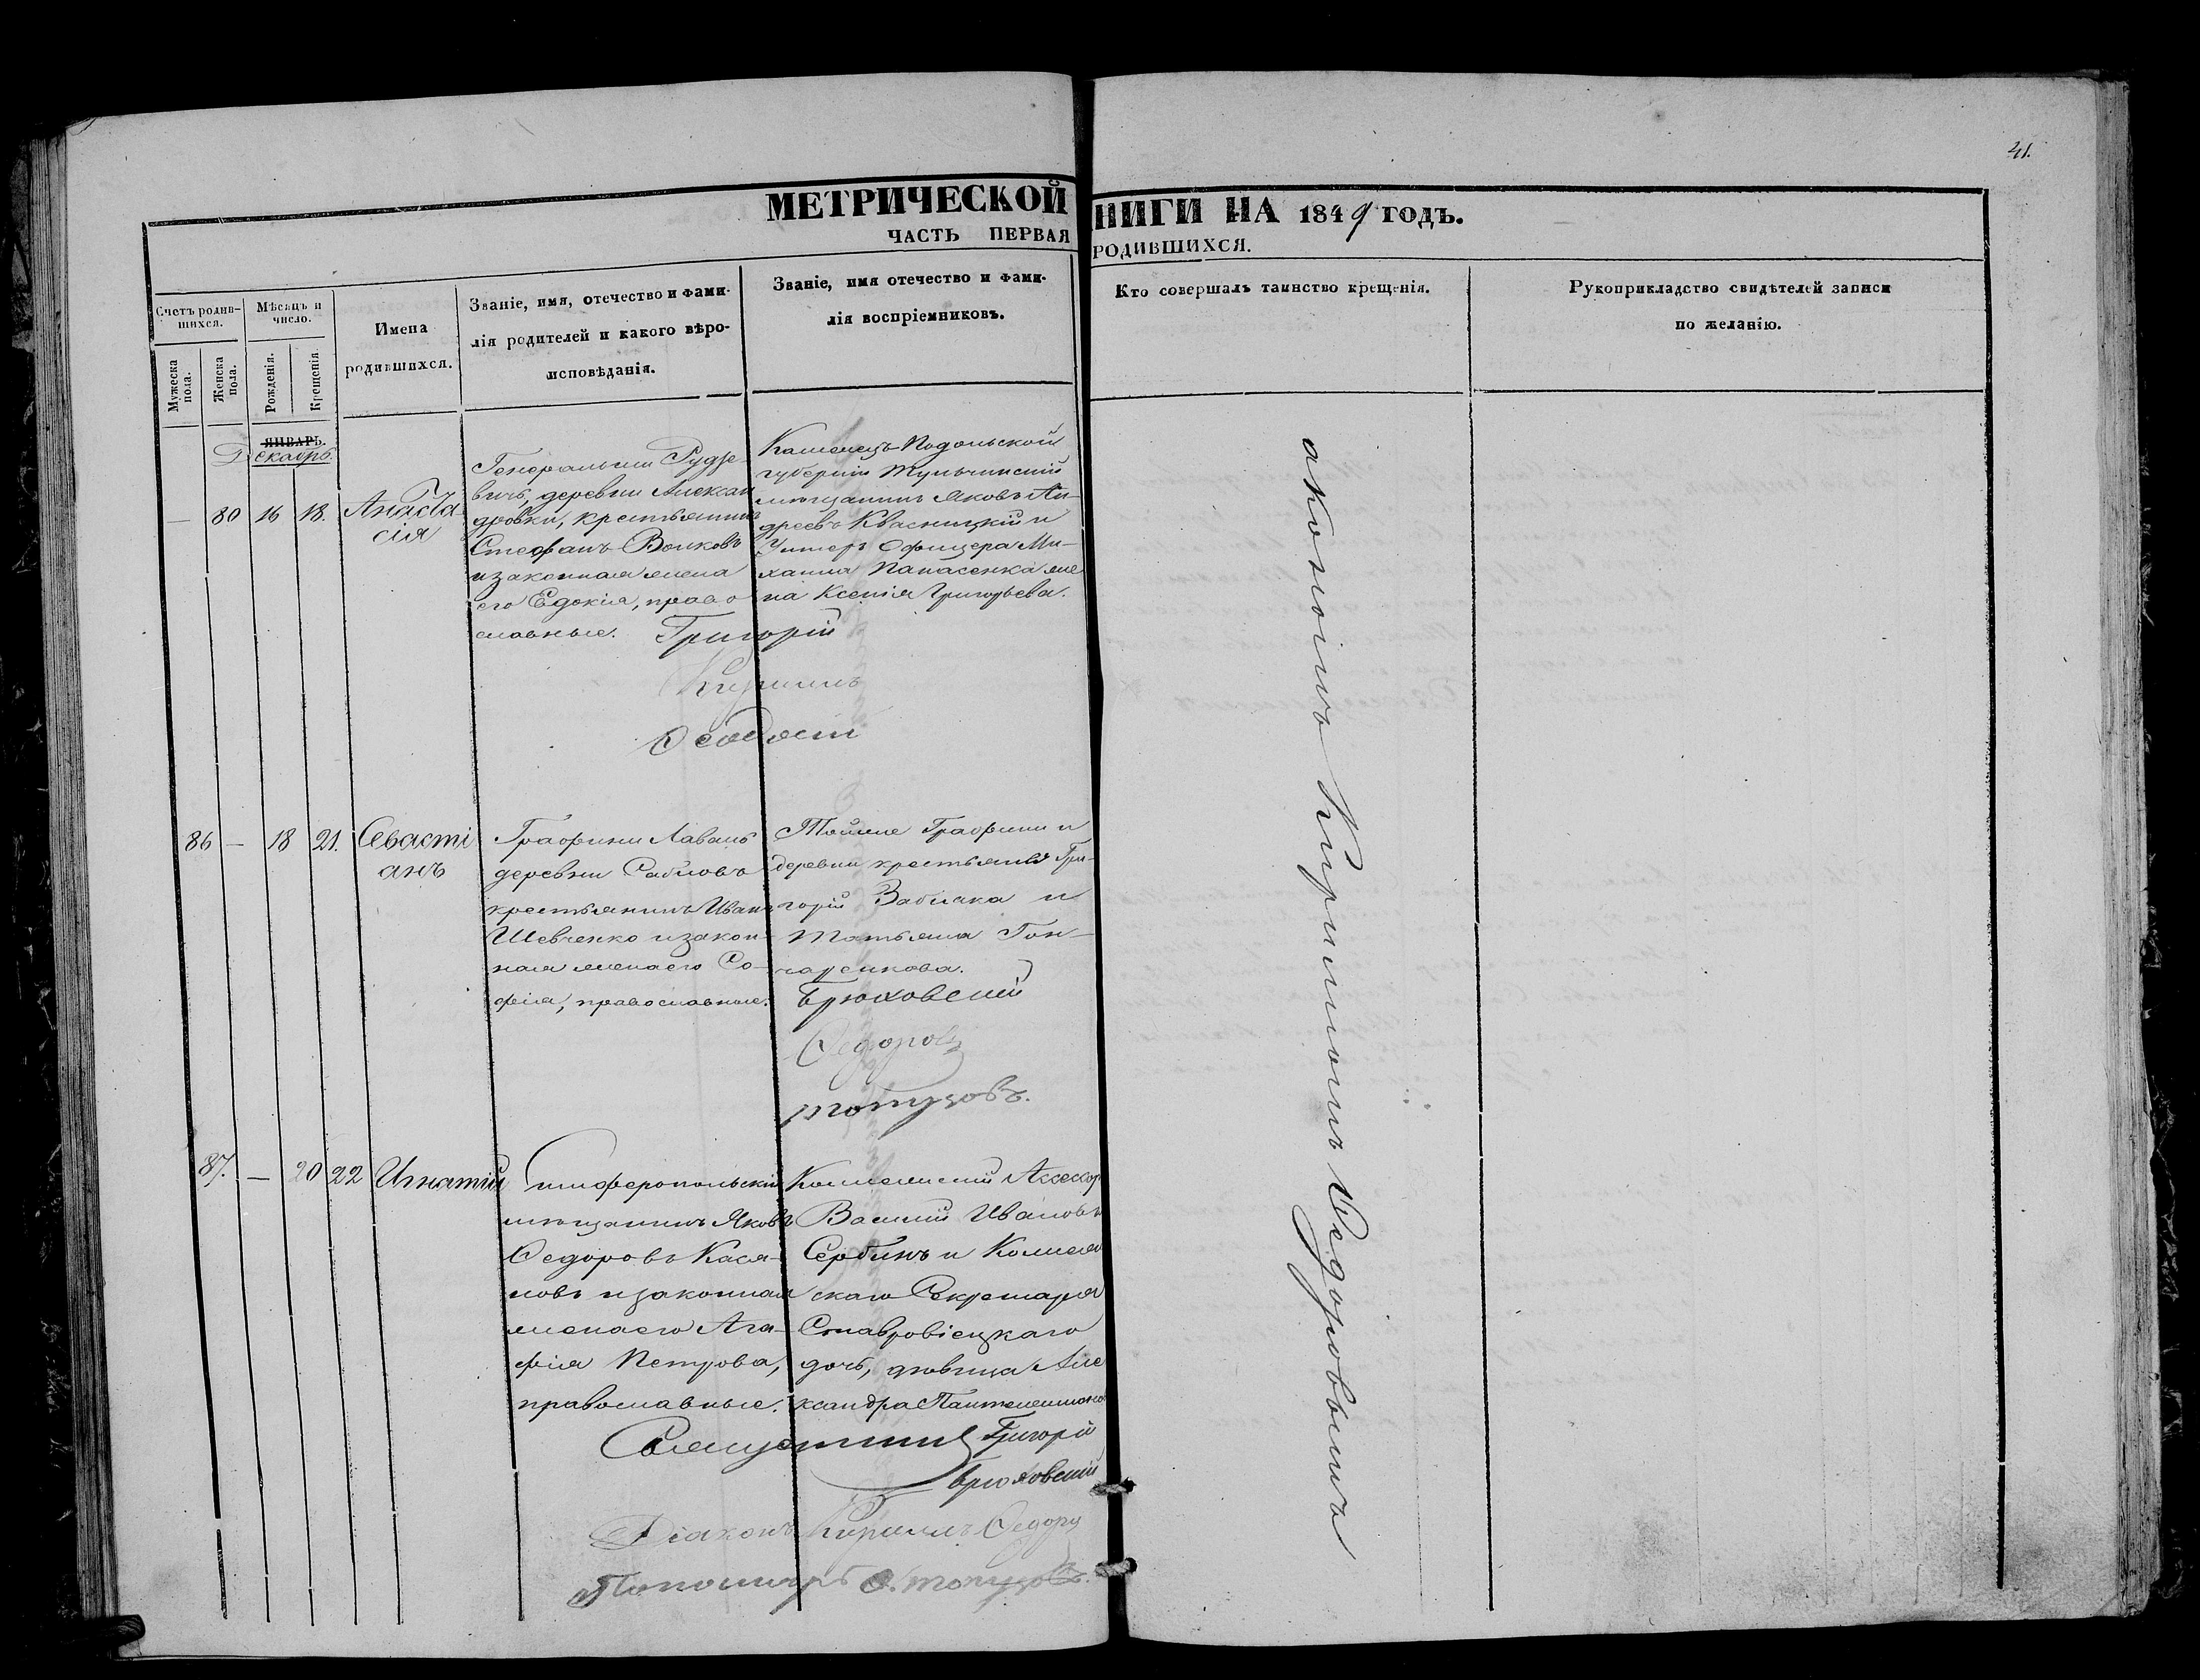 41.
МЕТРИЧЕСКОЙ
НИГИ НА 1849 ГОДЪ.
ЧАСТЬ ПЕРВАЯ
РОДИВШИХСЯ.
Счетъ родив-
шихся.
Мужеска
пола.
Женска
пола.
Мѣсяцъ и
число.
Рожденія.
Крещенія.
Имена
родившихся.
Званіе, имя, отечество и фами-
лія родителей и какого вѣро-
исповѣданія.
Званіе, имя отечество и фами-
лія воспріемниковъ.
Кто совершалъ таинство крещенія.
Рукоприкладство свидѣтелей записи
по желанію.
ЯНВАРЬ.
Декабрь.
— 80 16 18.
Анаста-
сія
Генеральши Рудзе
вичъ, деревни Алексан
дровки, крестьянинъ
Стефанъ Волковъ
и законная жена
его Евдокія, право
славные.
Каменецъ-Подольской
губерніи Тульчинскій
мѣщанинъ Яковъ Ан-
дреевъ Квасницкій и
Унтеръ Офицера Ми-
хаила Панасенка же
на Ксенія Григорьева.
Григорій
Кириллъ
Феодосій
86 — 18 21.
Севасті
анъ
Графини Лаваль
деревни Сабловъ
крестьянинъ Иванъ
Шевченко и закон-
ная жена его Со-
фія, православные.
Тойже Графини и
деревни крестьяне Гри-
горій Забіяка и
Татьяна Гон-
чаренкова.
Брюховскій
Федоров
87. — 20 22
Игнатій
Симферопольскій
мѣщанинъ Яковъ
Федоровъ Кася-
новъ и законная
жена его Ага-
фія Петрова,
православные.
Коллежскій Ассесор
Василій Ивановъ
Сербинъ и Коллеж
скаго Секретаря
Ставровіецкаго
дочь, дѣвица Але
ксандра Пантелеимонов
Священникъ Григорій
Брюховскій
Діаконъ Кириллъ Федоров
Пономарь Ф.
акономъ Кирилломъ Федоровымъ